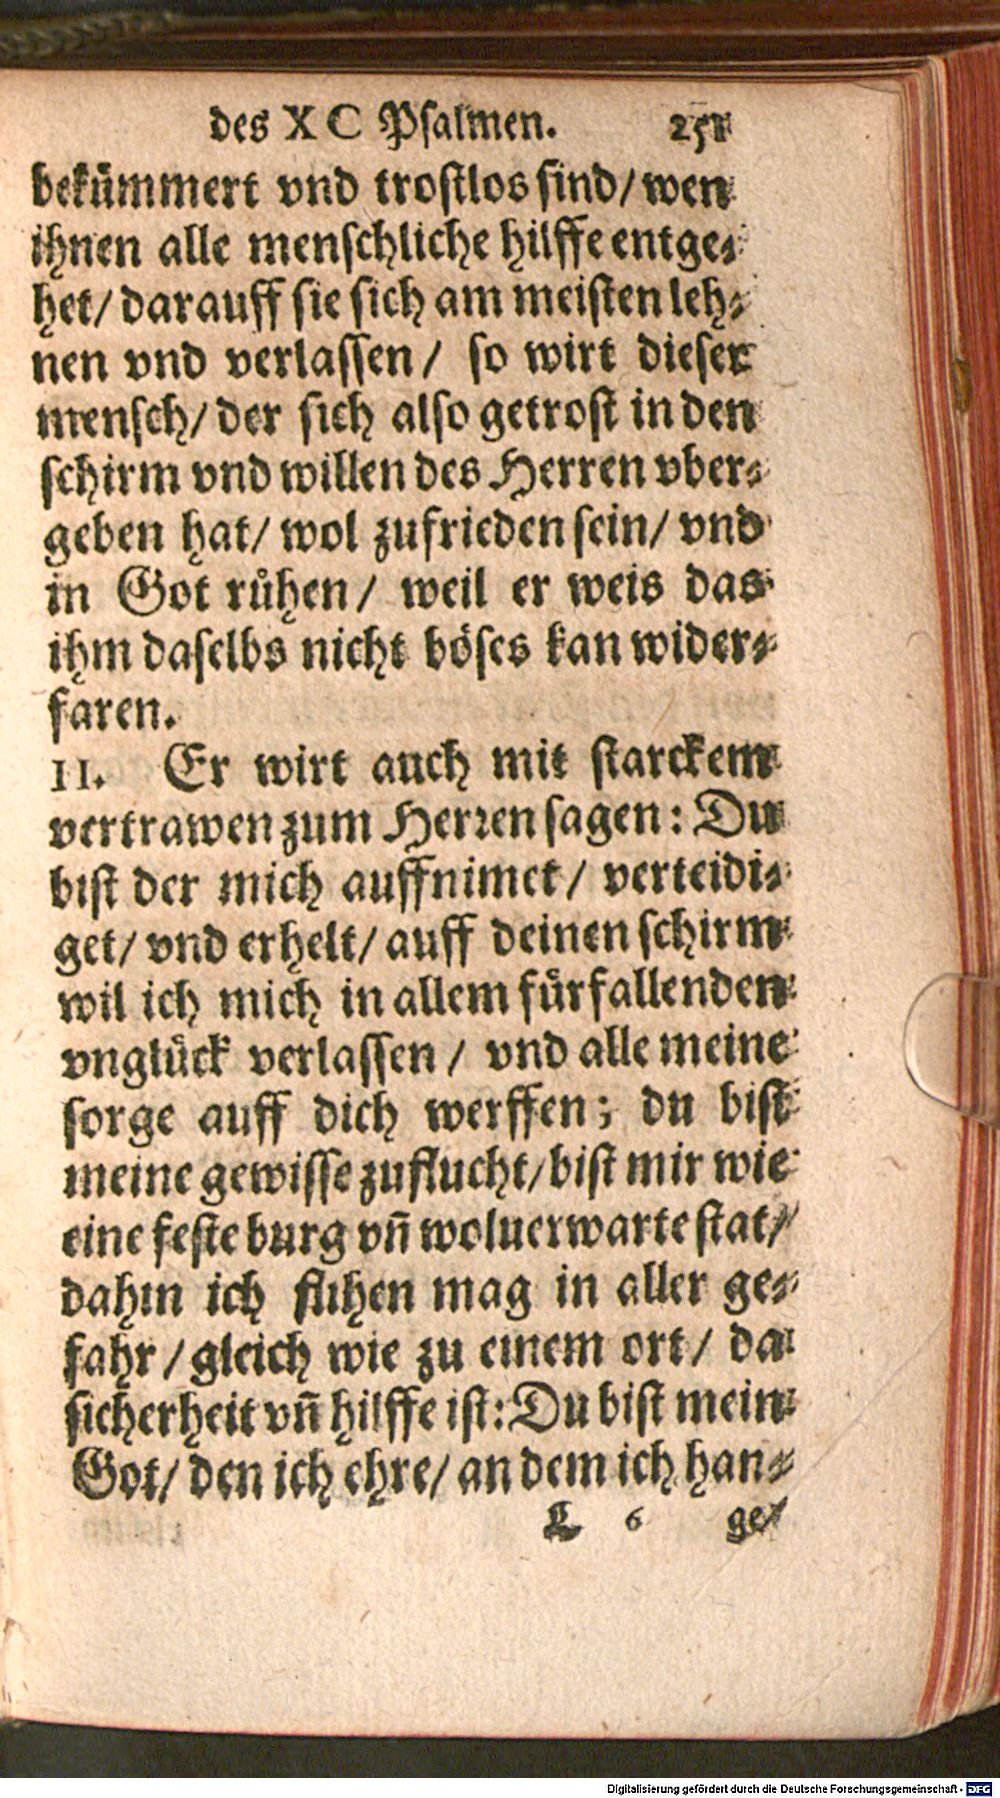 des X C Psalmen. 251
bekümmert vnd trostlos sind/ wen
ihnen alle menschliche hilffe entge⸗
het/ darauff sie sich am meisten leh⸗
nen vnd verlassen/ so wirt dieser
mensch/ der sich also getrost in den
schirm vnd willen des Herren vber⸗
geben hat/ wol zufrieden sein/ vnd
in Got růhen/ weil er weis das
ihm daselbs nicht böses kan wider⸗
faren.
II. Er wirt auch mit starckem
vertrawen zum Herren sagen: Du
bist der mich auffnimet/ verteidi⸗
get/ vnd erhelt/ auff deinen schirm
wil ich mich in allem fürfallenden
vnglück verlassen/ vnd alle meine
sorge auff dich werffen; du bist
meine gewisse zuflucht/ bist mir wie
eine feste burg vñ woluerwarte stat/
dahin ich flihen mag in aller ge⸗
fahr/ gleich wie zu einem ort/ da
sicherheit vñ hilffe ist: Du bist mein
Got/ den ich ehre/ an dem ich han⸗
L 6 ge/
Digitalisierung gefördert durch die Deutsche Forschungsgemeinschaft - DFG